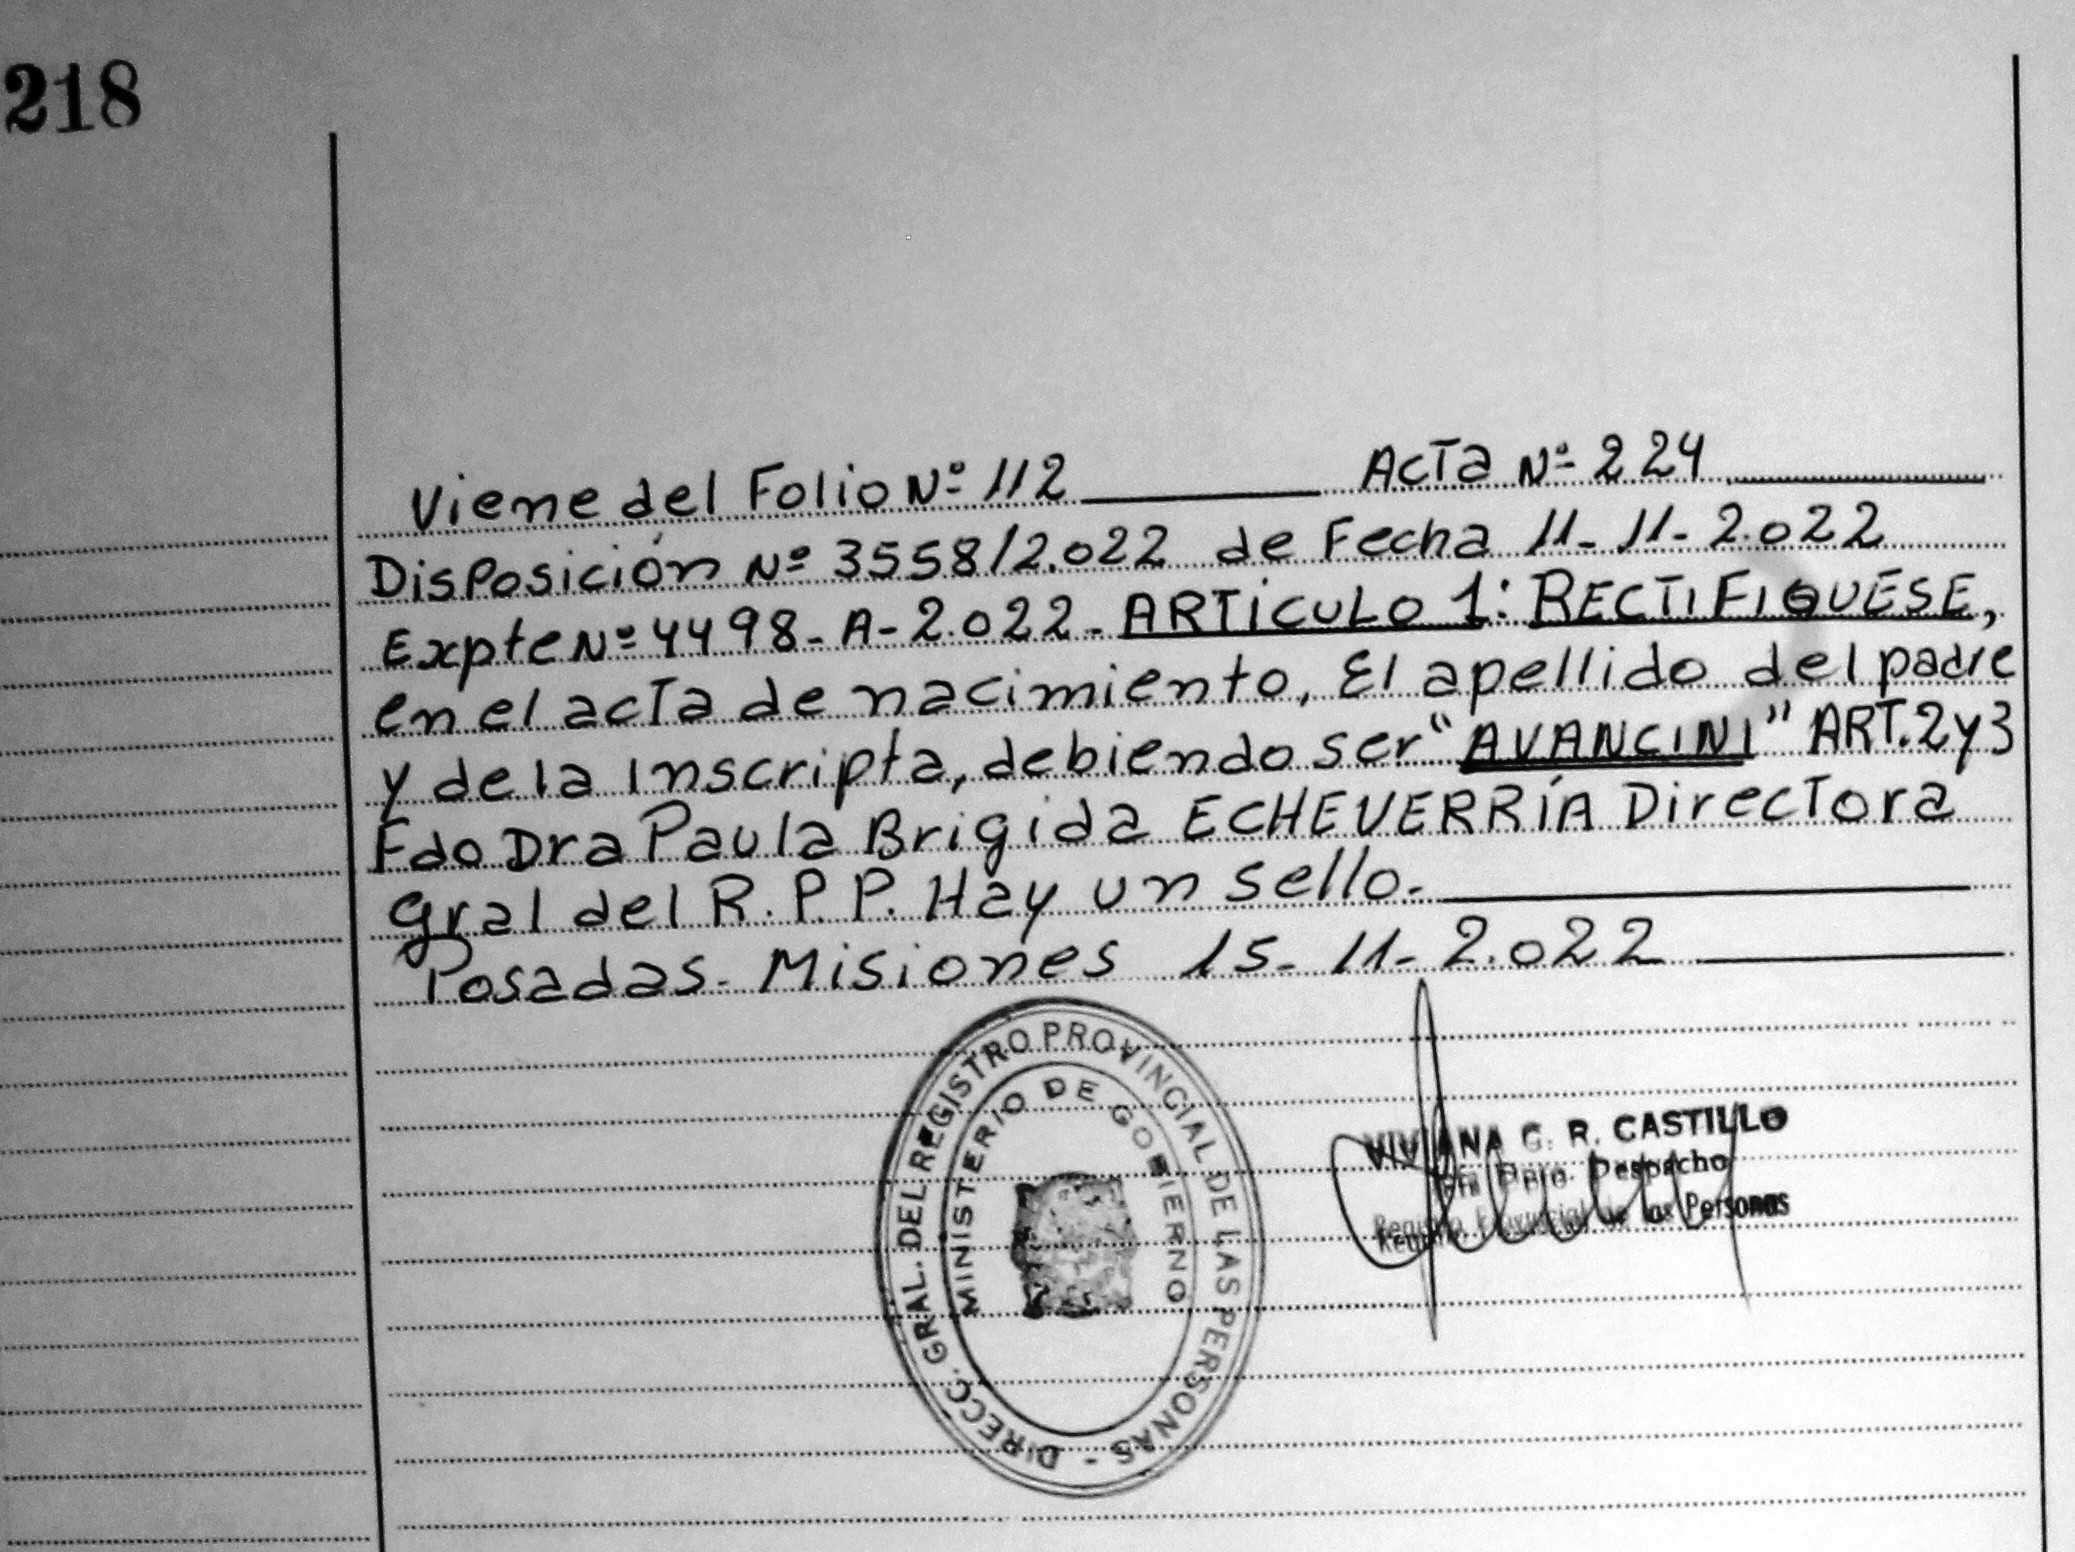 218
Viene del Folio Nº 112 Acta Nº 224
Disposición Nº 3558/2.022 de Fecha 11-11-2.022
Expte Nº 4498-A-2.022- ARTICULO 1: RECTIFIQUESE,
en el acta de nacimiento, El apellido del padre
y de la Inscripta, debiendo ser "AVANCINI" ART. 2 y 3
Fdo Dra Paula Brigida ECHEVERRÍA Directora
gral del R.P.P. Hay un sello.
Posadas- Misiones 15-11-2.022
DIRECC. GRAL. DEL REGISTRO PROVINCIAL DE LAS PERSONAS -
MINISTERIO DE GOBIERNO
VIVIANA G. R. CASTILLO
Dpto. Despacho
Registro Provincial de las Personas